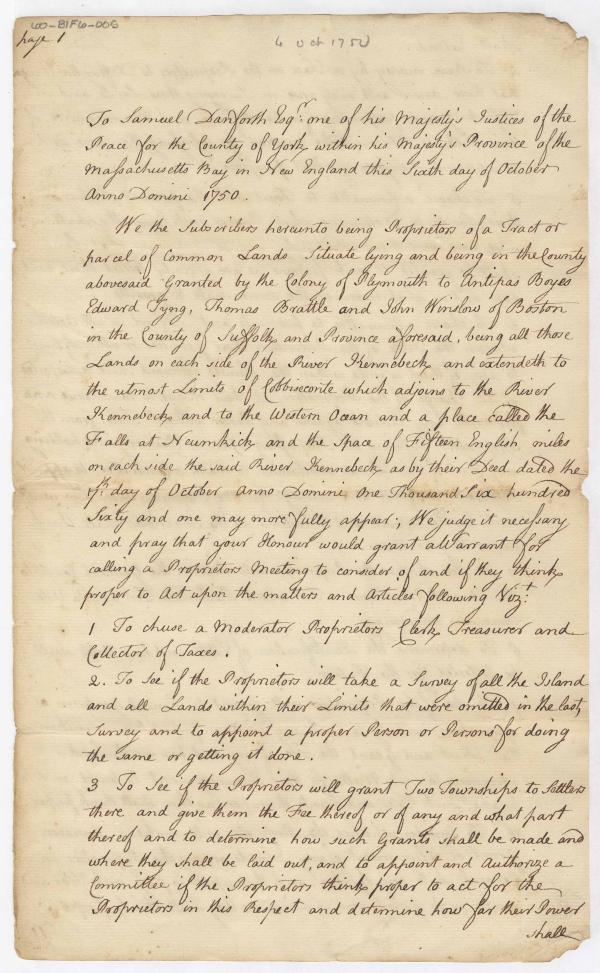 60-B1F6-006
page 1
6 Oct 1750
To Samuel Danforth Esqr. one of his Majesty's Justices of the
Peace for the County of York within his Majesty's Province of the
Massachusetts Bay in New England this Sixth day of October
Anno Domini 1750.
We the Subscribers hereunto being Proprietors of a Tract or
parcel of Common Lands Situate lying and being in the County
abovesaid Granted by the Colony of Plymouth to Antipas Boyes
Edward Tyng, Thomas Brattle and John Winslow of Boston
in the County of Suffolk and Province aforesaid, being all those
Lands on each side of the River Kennebeck and extendeth to
the utmost Limits of Cobbiseconte which adjoins to the River
Kennebeck and to the Western Ocean and a place called the
Falls at Neumkick and the Space of Fifteen English miles
on each side the said River Kennebeck as by their Deed dated the
day of October Anno Domini One Thousand Six hundred
Sixty and one may more fully appear; We judge it necessary
and pray that your Honour would grant a Warrant for
calling a Proprietors Meeting to consider of and if they think
proper to Act upon the matters and Articles following Vizt.
1 To chuse a Moderator Proprietors Clerk Treasurer and
Collector of Taxes.
2. To See if the Proprietors will take a Survey of all the Island
and all Lands within their Limits that were omitted in the last
Survey and to appoint a proper Person or Persons for doing
the same or getting it done.
3 To See if the Proprietors will grant Two Townships to Settlers
there and give them the Fee thereof or of any and what part
thereof and to determine how such Grants shall be made and
where they shall be laid out, and to appoint and Authorize a
Committee if the Proprietors think proper to act for the
Proprietors in this Respect and determine how far their Power
shall